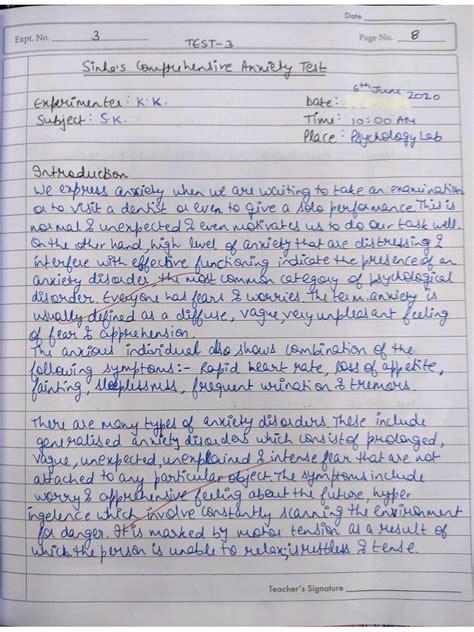 Date
Expt. No. 3
Page No. 8
TEST-3
Sinha's Comprehensive Anxiety Test
Experimenter : K.K.
Subject : S.K.
6th June 2020
Date :
Time : 10:00 AM
Place : Psychology Lab
Introduction
We express anxiety when we are waiting to take an examination
or to visit a dentist or even to give a solo performance. This is
normal & unexpected & even motivates us to do our task well.
On the other hand, high level of anxiety that are distressing &
interfere with effective functioning indicate the presence of an
anxiety disorder the most common category of psychological
disorder. Everyone has fears & worries. The term anxiety is
usually defined as a diffuse, vague, very unpleasant feeling
of fear & apprehension.
The anxious individual also shows combination of the
following symptoms :- Rapid heart rate, loss of appetite,
fainting, sleeplessness, frequent urination & tremors.
There are many types of anxiety disorders. These include
generalised anxiety disorders which consist of prolonged,
vague, unexpected, unexplained & intense fear that are not
attached to any particular object. The symptoms include
worry & apprehensive feeling about the future, hyper
ingelence which involve constantly scanning the environment
for danger. It is marked by motor tension as a result of
which the person is unable to relax, is restless & tense.
Teacher's Signature